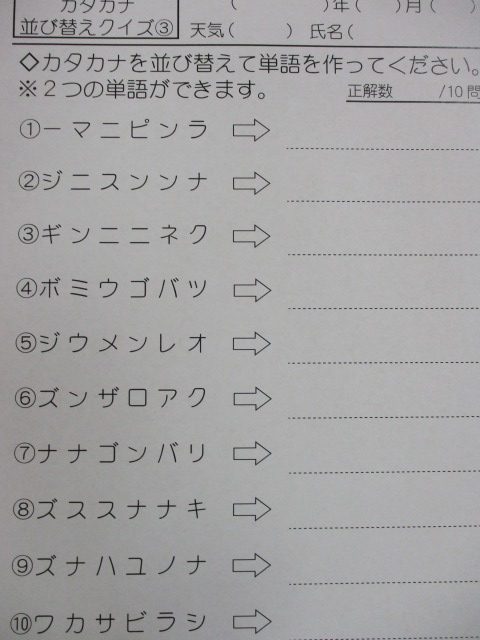 カタカナ
並び替えクイズ③
( )年( )月( )
天気( ) 氏名(
◇カタカナを並び替えて単語を作ってください。
※２つの単語ができます。
正解数 /10問
①ーマニピンラ
②ジニスンンナ
③ギンニニネク
④ボミウゴバツ
⑤ジウメンレオ
⑥ズンザロアク
⑦ナナゴンバリ
⑧ズススナナキ
⑨ズナハユノナ
⑩ワカサビラシ